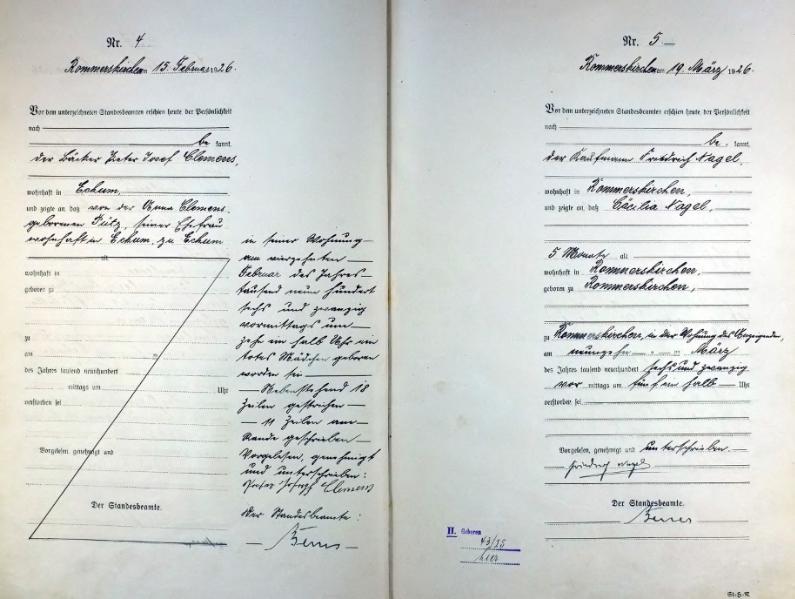 Nr. 4
Rommerskirchen am 15. Februar 1926.
Vor dem unterzeichneten Standesbeamten erschien heute, der Persönlichkeit
nach
be kannt,
der Bäcker Peter Josef Clemens,
wohnhaft in Eckum,
und zeigte an, daß von der Anna Clemens,
gebornen Pütz, seiner Ehefrau
wohnhaft in Eckum, zu Eckum
alt
wohnhaft in
geboren zu
zu
am
des Jahres tausend neunhundert
mittags um Uhr
verstorben sei
Vorgelesen, genehmigt und
Der Standesbeamte.
in seiner Wohnung
am vierzehnten
Februar des Jahres
tausend neun hundert
sechs und zwanzig
vormittags um
zehn ein halb Uhr ein
totes Mädchen geboren
worden sei
Nebenstehend 18
Zeilen gestrichen
11 Zeilen am
Rande geschrieben
Vorgelesen, genehmigt
und unterschrieben:
Peter Joseph Clemens
Der Standesbeamte:
Berres
Nr. 5
Rommerskirchen am 19. März 1926.
Vor dem unterzeichneten Standesbeamten erschien heute, der Persönlichkeit
nach
be kannt,
der Kaufmann Friedrich Nagel,
wohnhaft in Rommerskirchen,
und zeigte an, daß Cäcilia Nagel,
5 Monate alt
wohnhaft in Rommerskirchen,
geboren zu Rommerskirchen,
zu Rommerskirchen, in der Wohnung des Anzeigenden,
am neunzehnten März
des Jahres tausend neunhundert sechs und zwanzig
vor mittags um fünf ein halb Uhr
verstorben sei.
Vorgelesen, genehmigt und unterschrieben
Friedrich Nagel
Der Standesbeamte.
Berres
II. Geboren
43/25
hier